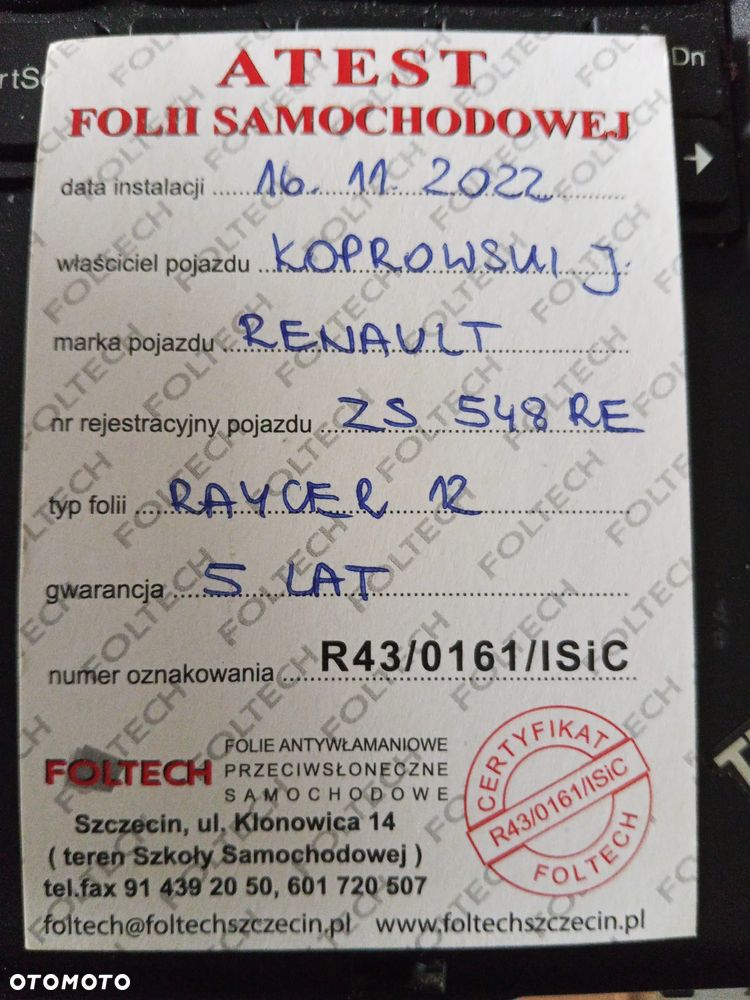 rtSc
Dn
ATEST
FOLII SAMOCHODOWEJ
data instalacji 16. 11. 2022
właściciel pojazdu KOPROWSKI J.
marka pojazdu RENAULT
nr rejestracyjny pojazdu ZS 548RE
typ folii RAYCER 12
gwarancja 5 LAT
numer oznakowania R43/0161/ISiC
FOLTECH
FOLIE ANTYWŁAMANIOWE
PRZECIWSŁONECZNE
SAMOCHODOWE
Szczecin, ul. Klonowica 14
( teren Szkoły Samochodowej )
tel.fax 91 439 20 50, 601 720 507
foltech@foltechszczecin.pl www.foltechszczecin.pl
CERTYFIKAT
R43/0161/ISiC
FOLTECH
OTOMOTO